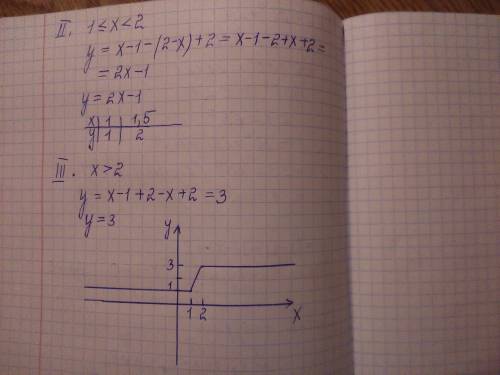 II. 1 ≤ x < 2
y = x-1-(2-x)+2 = x-1-2+x+2=
= 2x-1
y = 2x-1
x | 1 | 1,5
y | 1 | 2
III. x > 2
y = x-1+2-x+2 = 3
y = 3
y
3
1
1 2
x